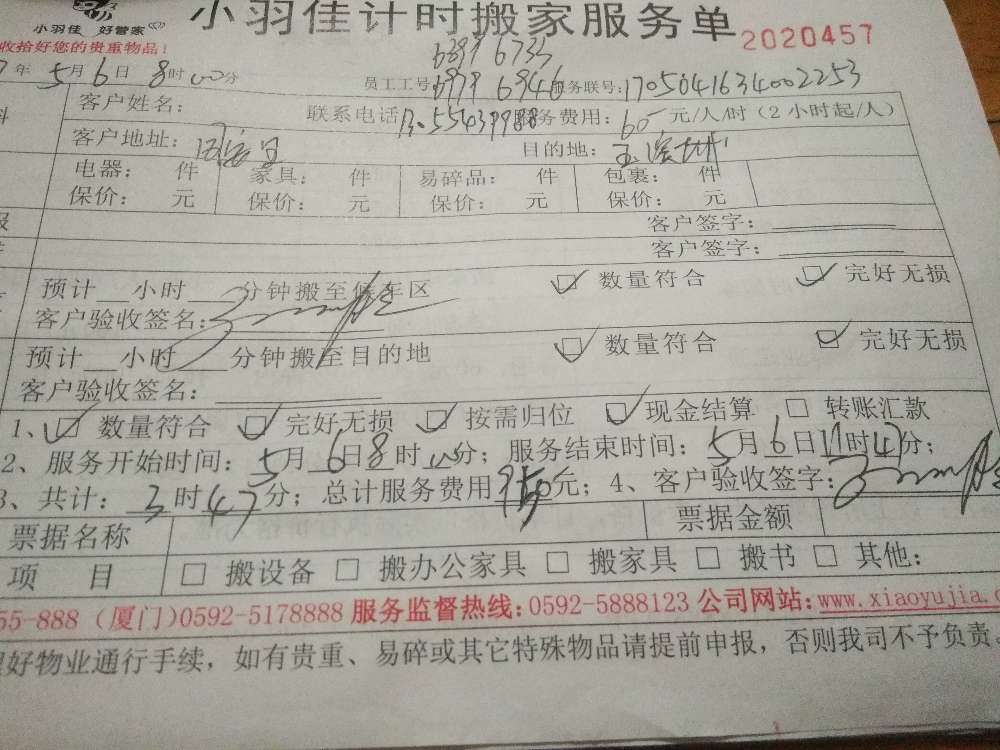 小羽佳计时搬家服务单
小羽佳 好管家
2020457
收拾好您的贵重物品!
6979 6946
年5月6日8时00分 员工工号: 服务联号:1705041634002253
客户姓名: 联系电话 服务费用:60元/人/时(2小时起/人)
客户地址: 目的地:
电器: 件 家具: 件 易碎品: 件 包裹: 件
保价: 元 保价: 元 保价: 元 保价: 元
客户签字:
客户签字:
预计__小时__分钟搬至候车区 数量符合 完好无损
客户验收签名:
预计__小时__分钟搬至目的地 数量符合 完好无损
客户验收签名:
1、☑数量符合 ☑完好无损 ☑按需归位 ☑现金结算 □转账汇款
2、服务开始时间:5月6日8时00分;服务结束时间:5月6日11时47分;
3、共计:3时47分;总计服务费用 元;4、客户验收签字:
票据名称 票据金额
项目 □搬设备 □搬办公家具 □搬家具 □搬书 □其他:
55-888 (厦门)0592-5178888 服务监督热线:0592-5888123 公司网站:www.xiaoyujia.
好物业通行手续,如有贵重、易碎或其它特殊物品请提前申报,否则我司不予负责